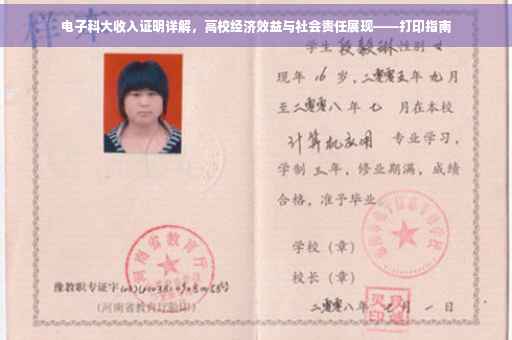 电子科大收入证明详解，高校经济效益与社会责任展现——打印指南
样本
学生 段毅琳 性别 女
现年 16 岁，二零零五年 九月
至二零零八年 七 月在本校
计算机应用 专业学习，
学制 三 年，修业期满，成绩
合格，准予毕业
学校（章）
校长（章）
二零零八年 七 月 一 日
河南省教育厅
豫教职专证字
（河南省教育厅验印）